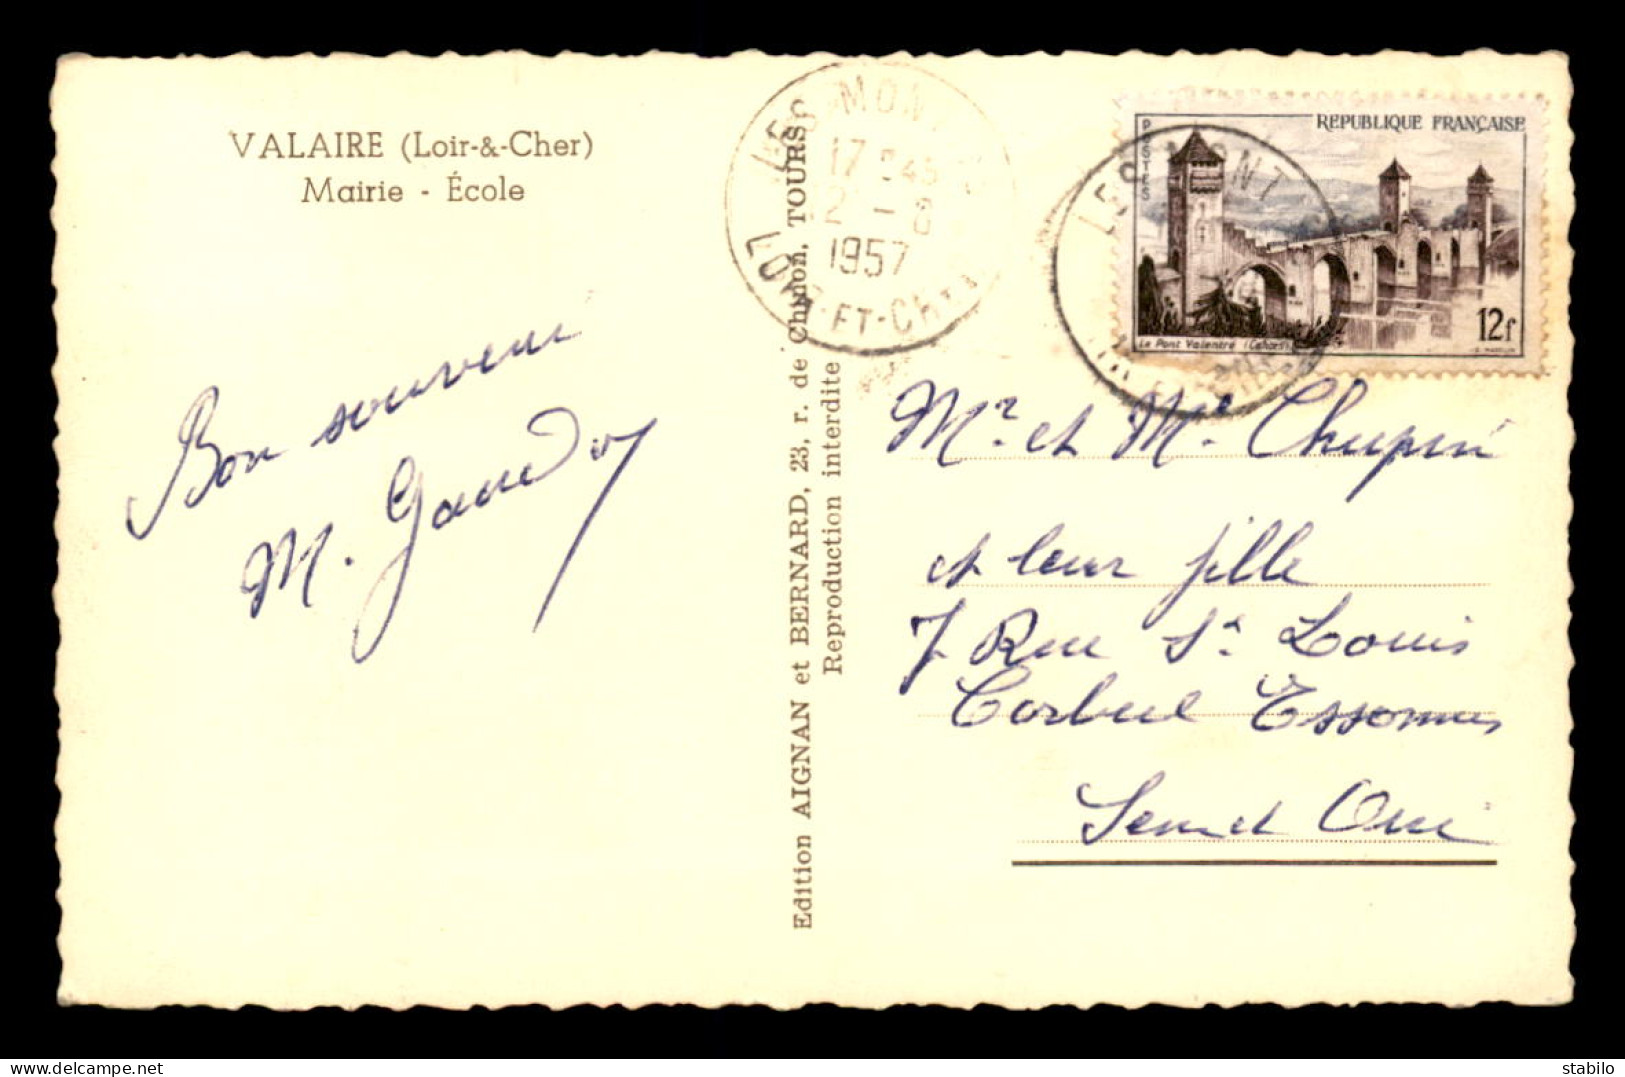 VALAIRE (Loir-&-Cher)
Mairie - École
Bon souvenir
M.
Edition AIGNAN et BERNARD, 23, r. de Chinon, TOURS
Reproduction interdite
LES MONT
17 H45
12 - 8
1957
LOIR-ET-CHER
POSTES
REPUBLIQUE FRANÇAISE
12f
Le Pont Valentré (Cahors)
LES MONT
Mr. et Me. Chupin
et leur fille
7 Rue St Louis
Corbeil Essonnes
Seine et Oise
delcampe.net
stabilo